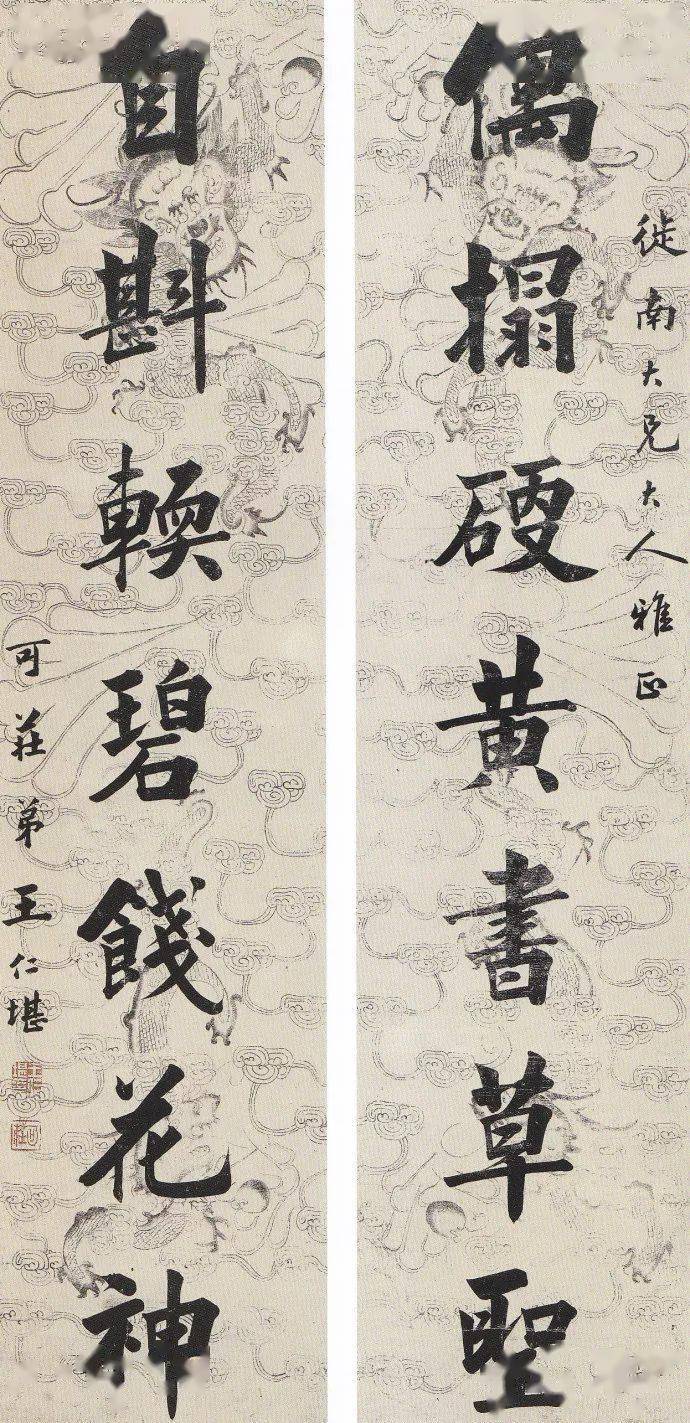 徙南大兄大人雅正
偶搨硬黄書草聖
自斟輭碧餞花神
可莊弟王仁堪